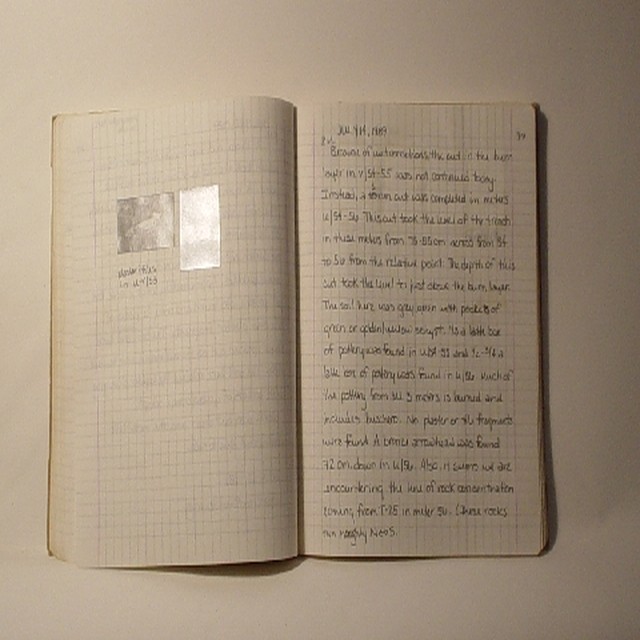 under tiles
in U-V/55
July 14, 1989
Because of the the cut in the burn
layer in V/54-55 was not continued today.
Instead, a 10cm cut was completed in meters
U/54-56. This cut took the level of the trench
in these meters from 75-85cm across from 54
to 56 from the relative point. The depth of this
cut took the level to just above the burn layer.
The soil here was gray again with pockets of
green or golden/yellow 1/2 a latte box
of pottery was found in U/54-55 and
latte box of pottery was found in U/56. Much of
the pottery from all 3 meters is burned and
includes No plaster or tile fragments
were found. A bronze arrowhead was found
72 cm. down in U/56. Also, it seems we are
encountering the line of rock concentration
coming from T-25 in meter 56. (These rocks
run roughly N to S.